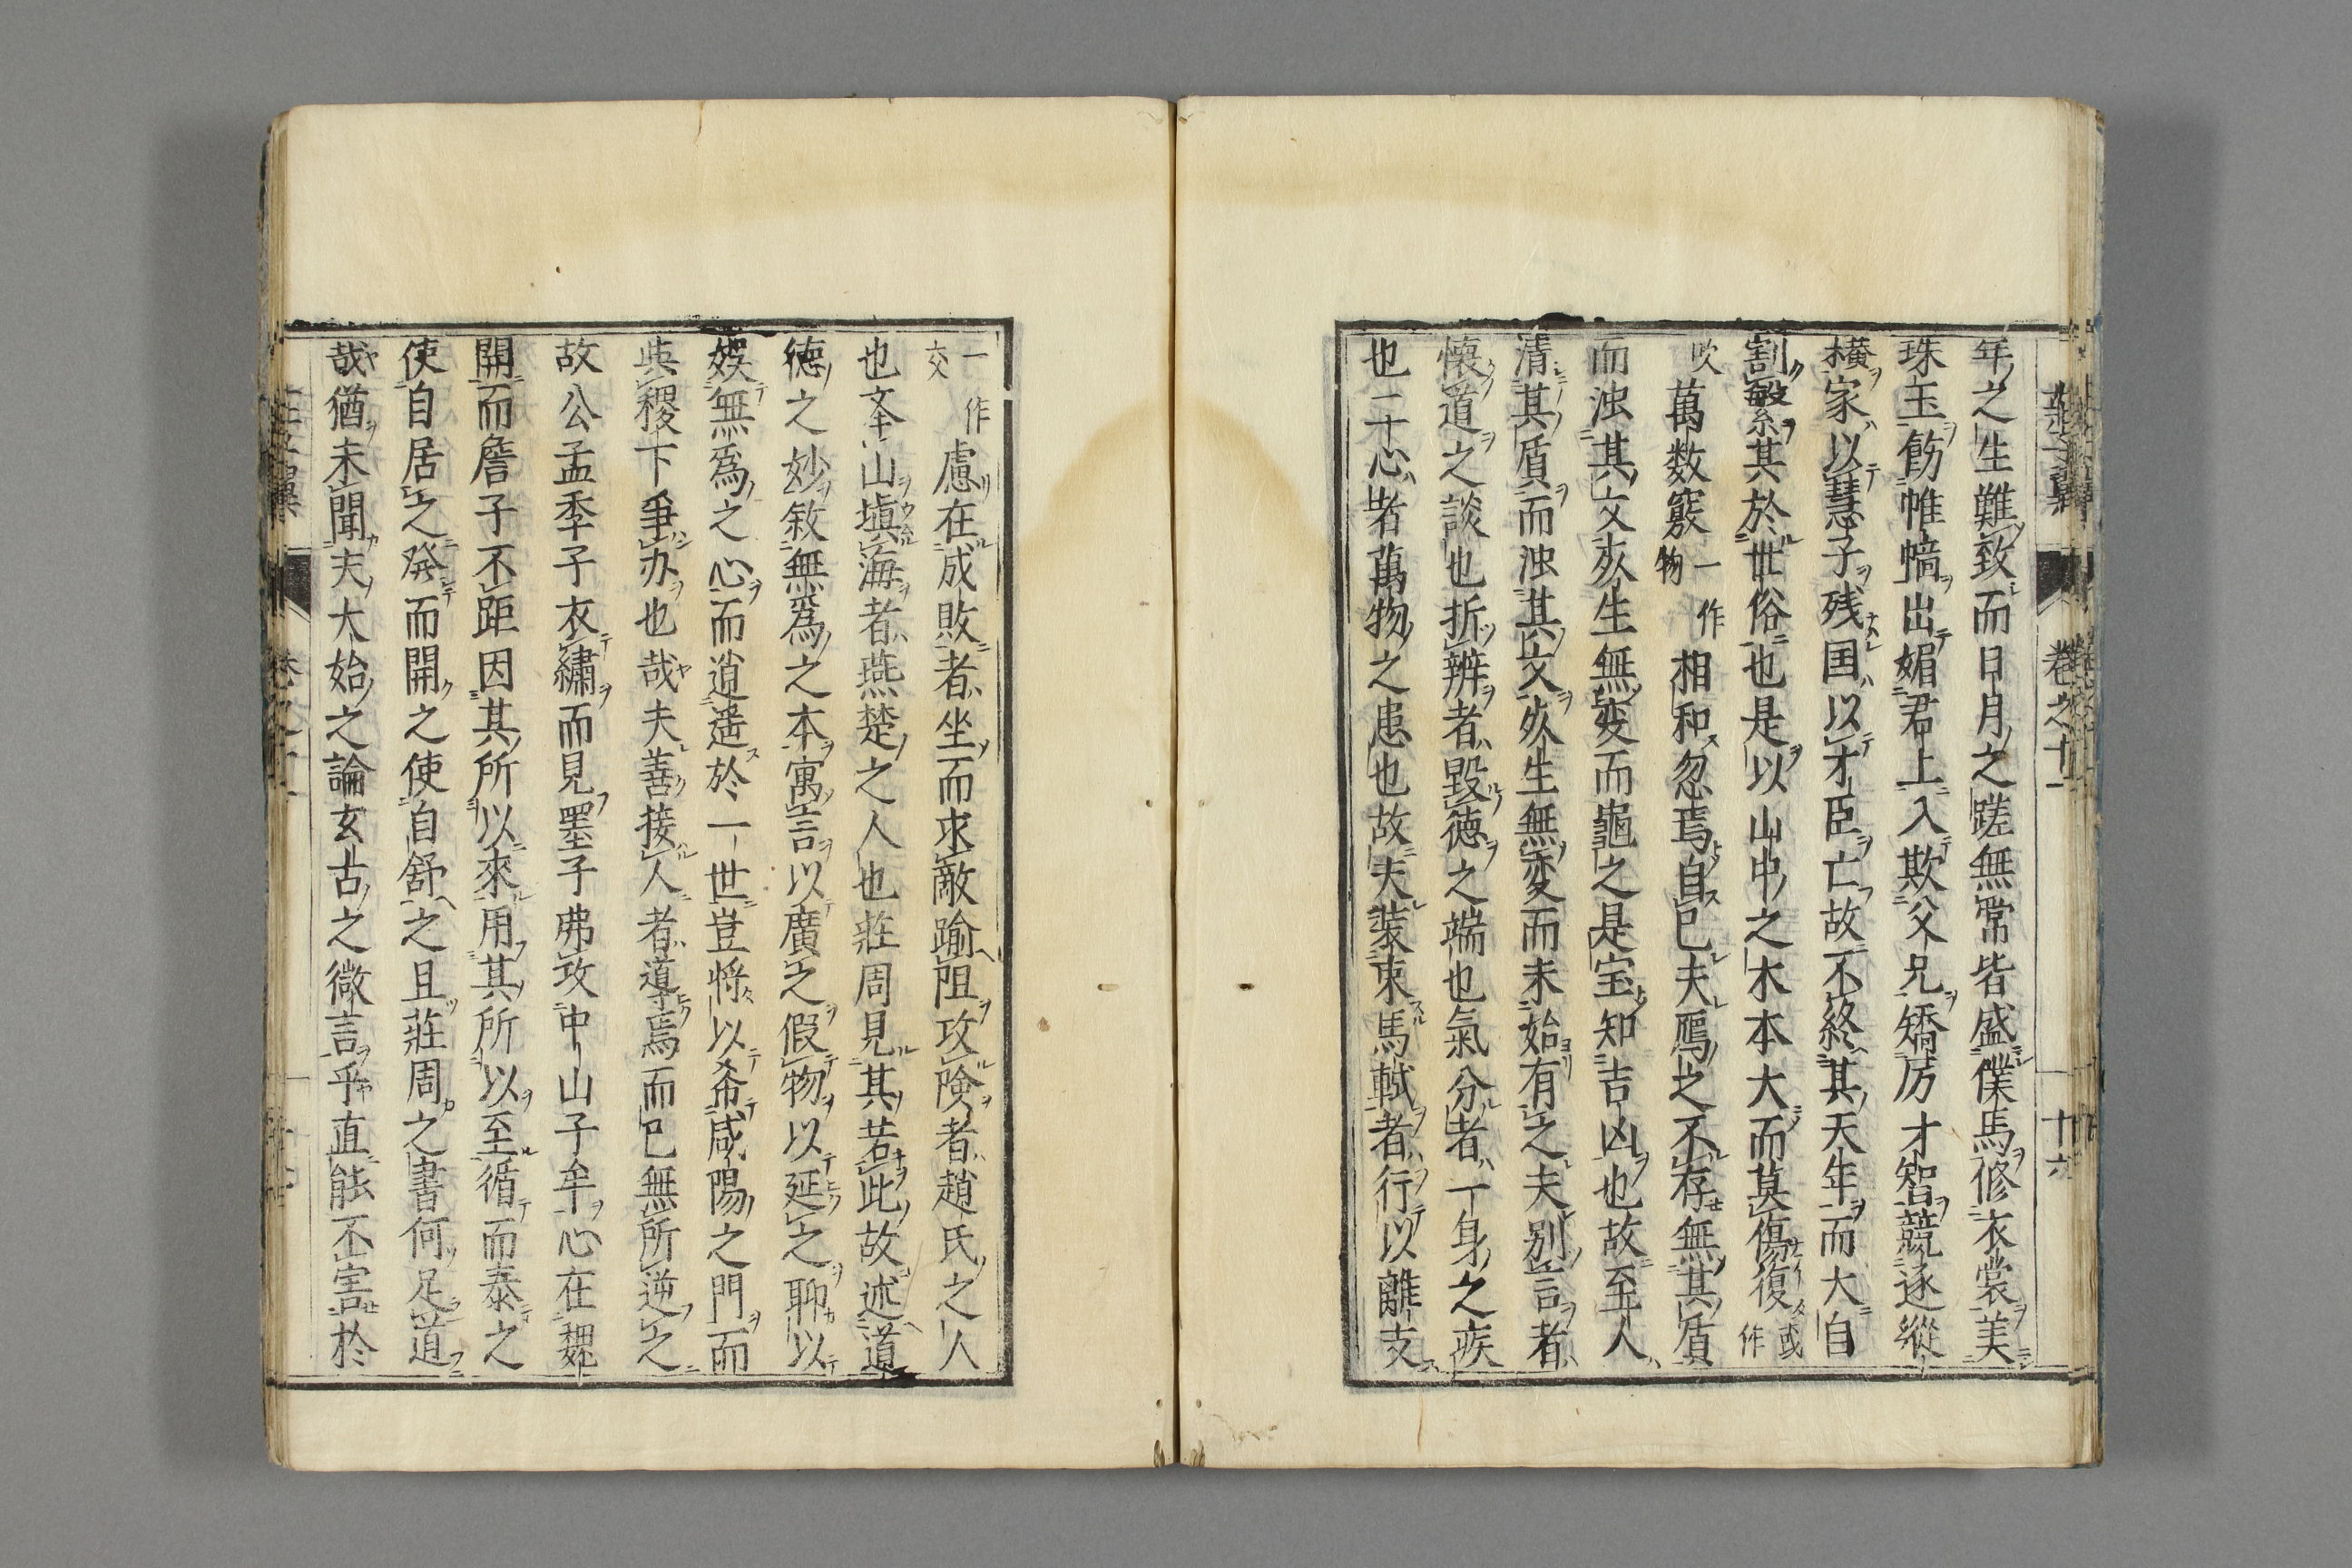 莊子翼 卷之十一 十六
年之生難致而日月之蹉無常皆盛僕馬修衣裳美
珠玉飭帷幬出媚君上入欺父兄矯厉才智競逐縱
橫家以慧子残国以才臣亡故不終其天年而大自
割繁其於世俗也是以山中之木本大而莫傷復或作
吹萬数竅一作物相和忽焉自已夫鴈之不存無其質
而浊其文灰生無変而龜之是宝知吉凶也故至人
清其質而浊其文灰生無変而未始有之夫別言者
懷道之談也折辨者毀德之端也氣分者一身之疾
也二心者萬物之患也故夫装束馬軾者行以離支
一作交慮在成敗者坐而求敵踰阻攻険者趙氏之人
也夅山塡海者燕楚之人也莊周見其若此故述道
德之妙敘無爲之本寓言以廣之假物以延之聊以
娛無爲之心而逍遥於一世豈將以希咸陽之門而
與稷下爭办也哉夫善接人者導焉而已無所逆之
故公孟季子衣繡而見墨子弗攻中山子牟心在魏
開而詹子不距因其所以來用其所以至循而泰之
使自居之発而開之使自舒之且莊周之書何足道
哉猶未聞夫大始之論玄古之微言乎直能不害於